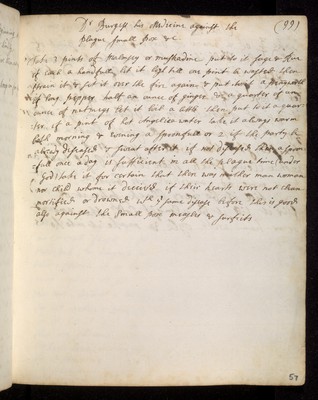 Dr Burgess his Medicine against the (99)
Plague small Pox &c
Take 3 pints of Malmsey or muskadine put to it sage & Rue
of each a handfull let it boyl till one pint be wasted then
strein it & set it over the fire again & put to it a
of long pepper half an ounce of ginger & a quarter of an
ounce of nutmegs let it boil a little then put to it a quar-
ter of a pint of hot Angelica water take it always warm
both morning & evening a spoonfull or 2 if the party be
already diseased & sweat after it if not diseased then a spoon
full once a day is sufficient in all the plague time under
God take it for certain that there was neither man woman
nor child whome it deceived if their hearts were not then
mortified or drowned wth ye same disease before this is good
also against the small pox measles & surfeits
57